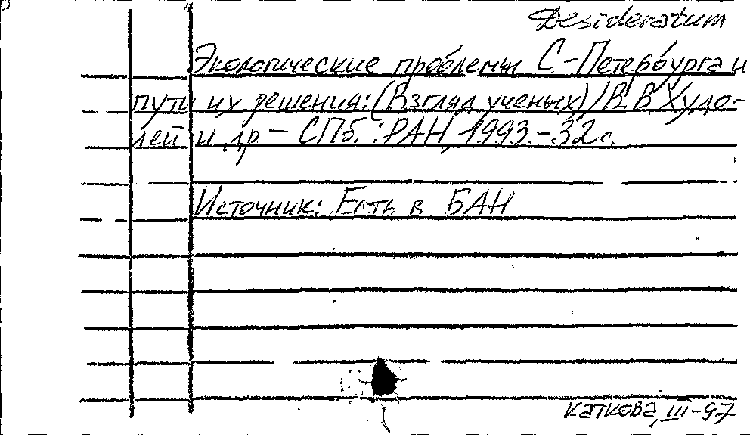 Desideratum
Экологические проблемы С.-Петербурга и
пути их решения: (Взгляд ученых) / В.В. Худо-
лей и др. – СПб.: РАН, 1993.–32 с.
Источник: Есть в БАН
Каткова, III-97